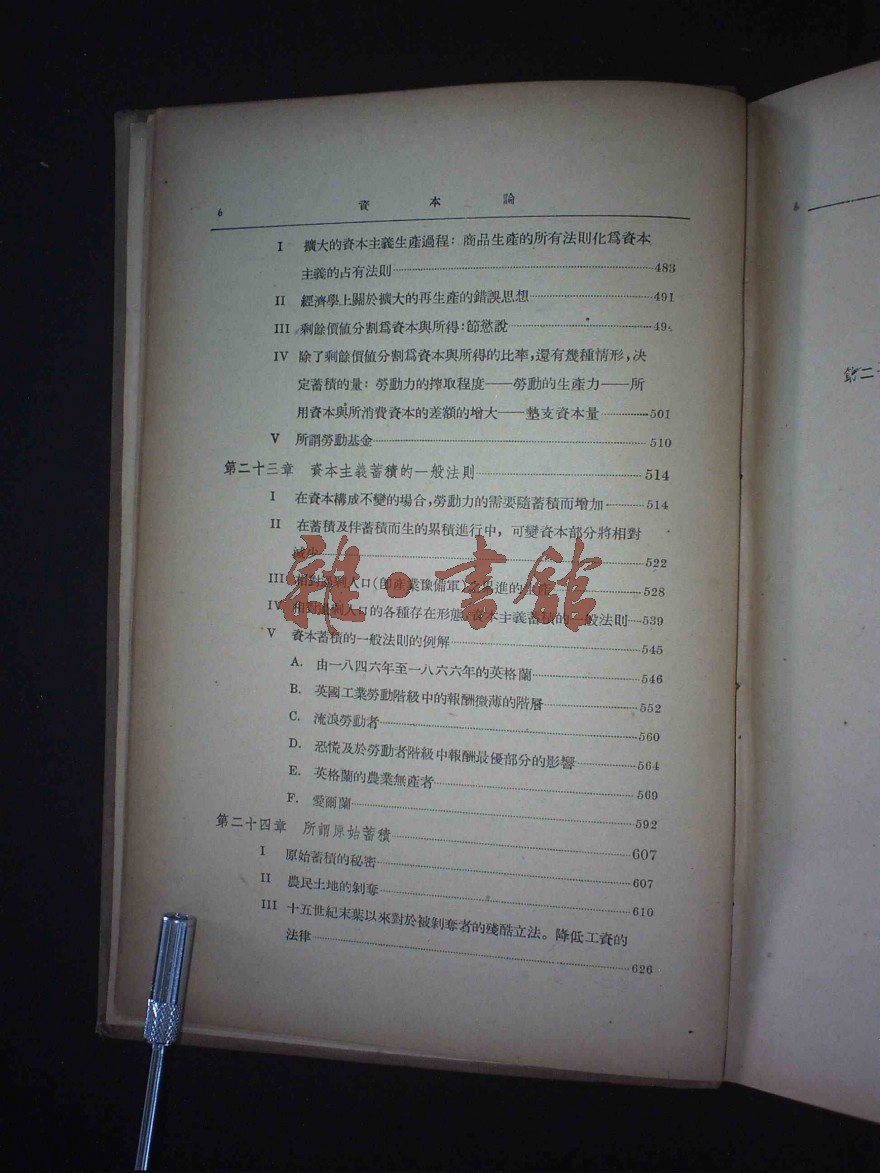 6 資本論
I 擴大的資本主義生產過程：商品生產的所有法則化爲資本
主義的占有法則 483
II 經濟學上關於擴大的再生產的錯誤思想 491
III 剩餘價値分割爲資本與所得：節慾說 49
IV 除了剩餘價値分割爲資本與所得的比率，還有幾種情形，决
定蓄積的量：勞動力的搾取程度——勞動的生產力——所
用資本與所消費資本的差額的增大——墊支資本量 501
V 所謂勞動基金 510
第二十三章 資本主義蓄積的一般法則 514
I 在資本構成不變的場合，勞動力的需要隨蓄積而增加 514
II 在蓄積及伴蓄積而生的累積進行中，可變資本部分將相對
減少 522
III 相對過剩人口（卽產業豫備軍）之累進的生產 528
IV 相對過剩人口的各種存在形態，資本主義蓄積的一般法則 539
V 資本蓄積的一般法則的例解 545
A. 由一八四六年至一八六六年的英格蘭 546
B. 英國工業勞動階級中的報酬微薄的階層 552
C. 流浪勞動者 560
D. 恐慌及於勞動者階級中報酬最優部分的影響 564
E. 英格蘭的農業無產者 569
F. 愛爾蘭 592
第二十四章 所謂原始蓄積 607
I 原始蓄積的秘密 607
II 農民土地的剝奪 610
III 十五世紀末葉以來對於被剝奪者的殘酷立法。降低工資的
法律 626
雜·書館
第二